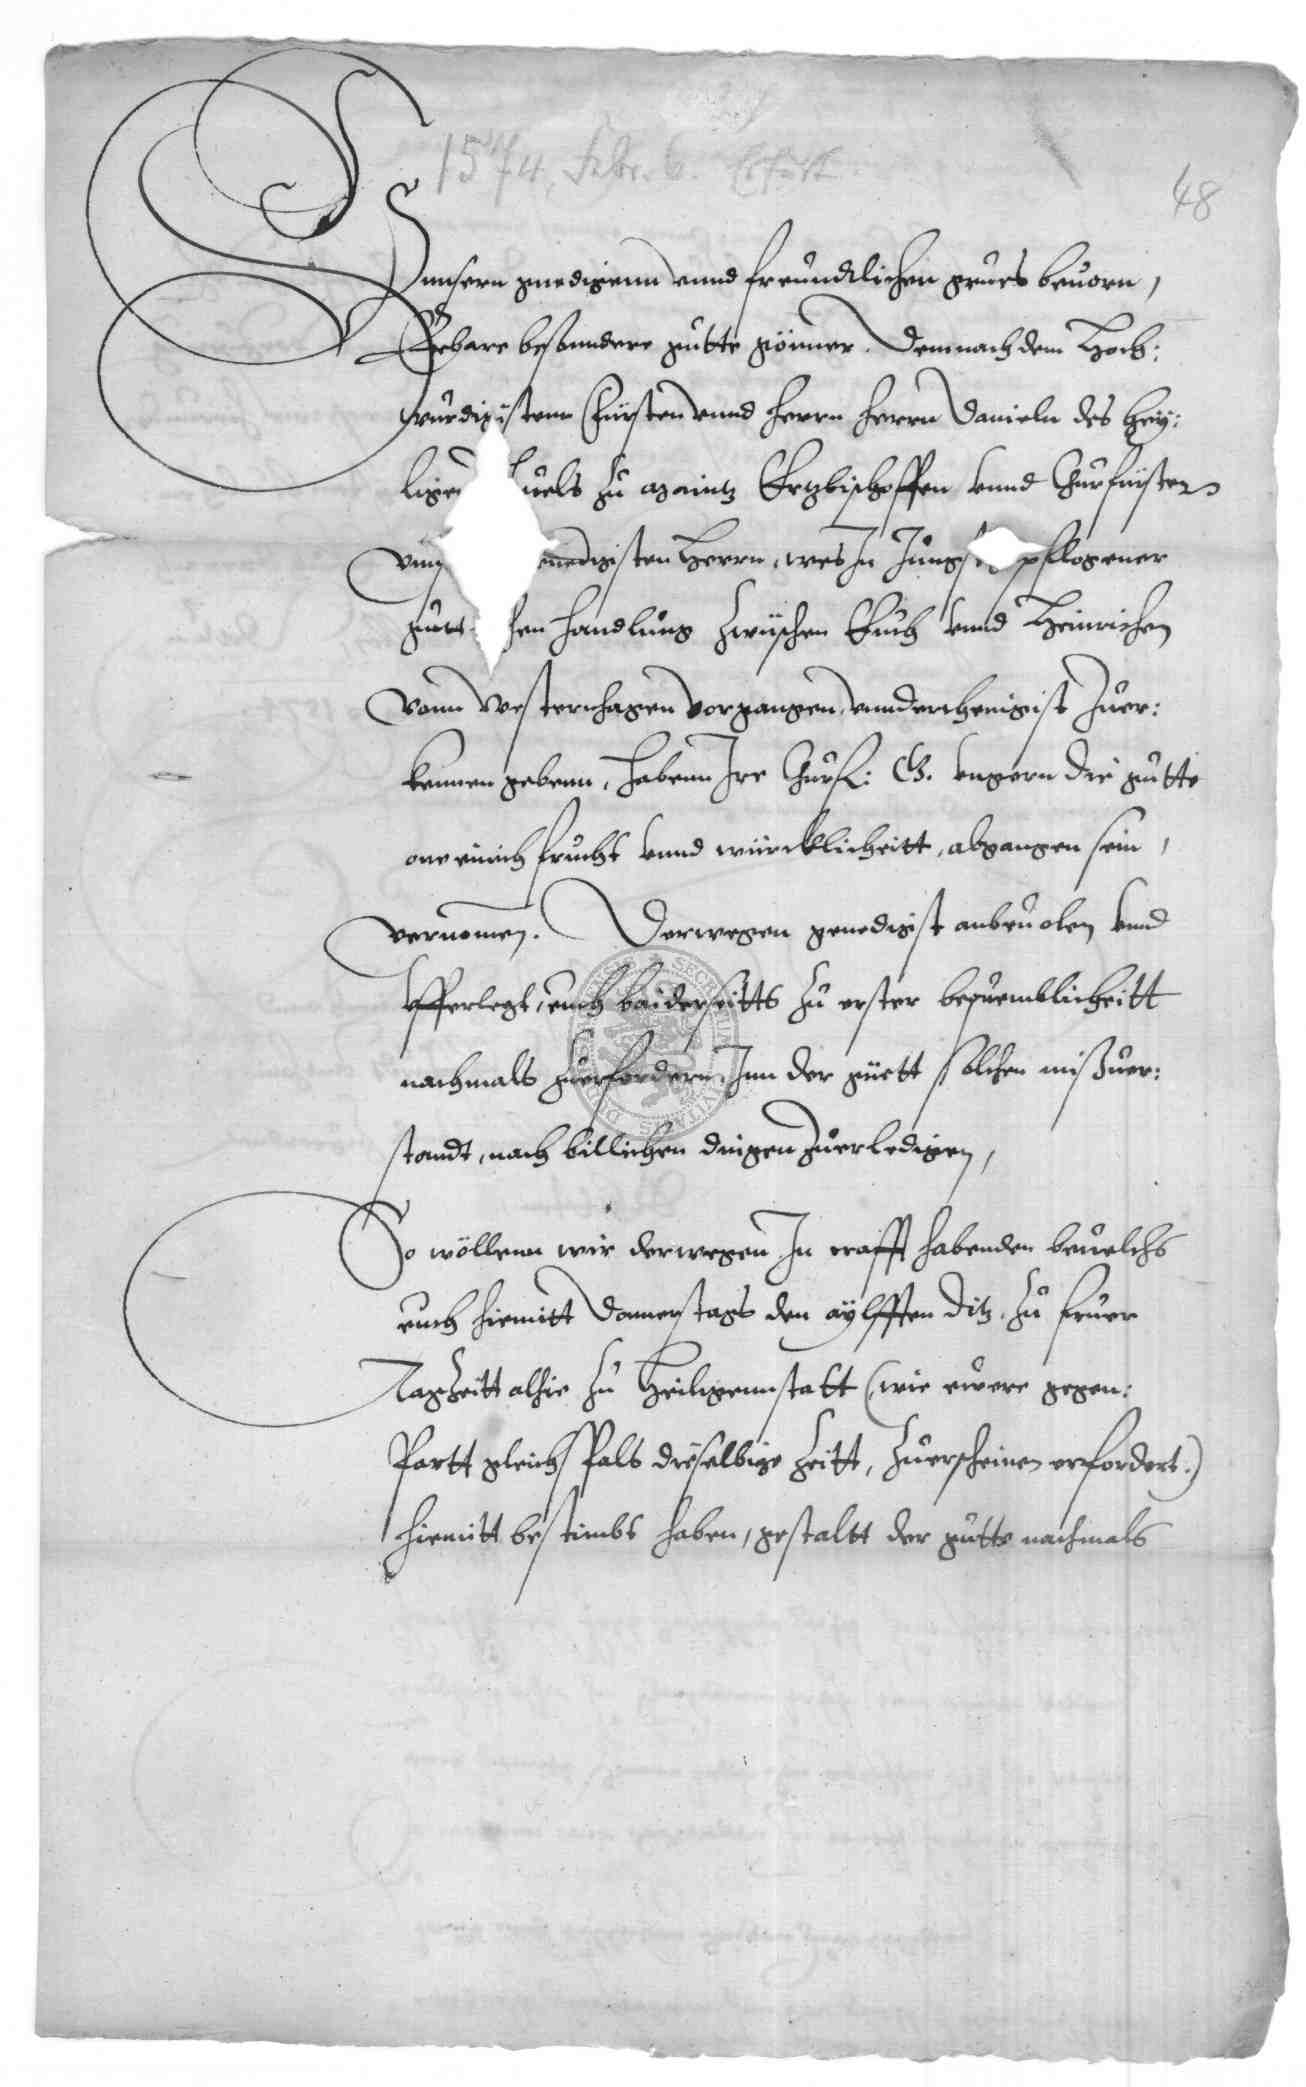 1574. Febr. 6. Erfurt
48
Vnnsern gnedigenn vnnd freundtlichen grues beuorn,
Erbare besonndere gutte gönner. Demnach dem Hoch:
würdigistenn Fürsten vnnd herrn herrn Danieln des hey:
ligen stuels zu Maintz Ertzbischoffen vnnd Churfürsten
vns genedigisten Herrn, wes In Jungst gepflogener
guttlichen handlung zwischen Euch vnnd Heinrichen
vonn Westernhagen vorgangen, vnnderthenigist zuer:
kennen gebenn, habenn Ire Churf: G. vngern die gutte
one einich frucht vnnd würcklicheitt, abgangen sein,
vernomen. Derwegen genedigist anbeuolen vnnd
vfferlegt, euch baiderseitts zu erster bequemblicheitt
nachmals zuerfordern, Inn der güett solchen mißuer:
standt, nach billichen dingen zuerledigen,
So wöllenn wir derwegen In crafft habenden beuelchs
euch hiemitt Donnerstags den aÿlfften ditz, zu fruer
Tagzeitt alhie zu Heiligennstatt (wie ewere gegen:
Partt gleichsfals dieselbige zeitt, zuerscheinen erfordert.)
hiemitt bestimbt haben, gestaltt der gutte nachmals